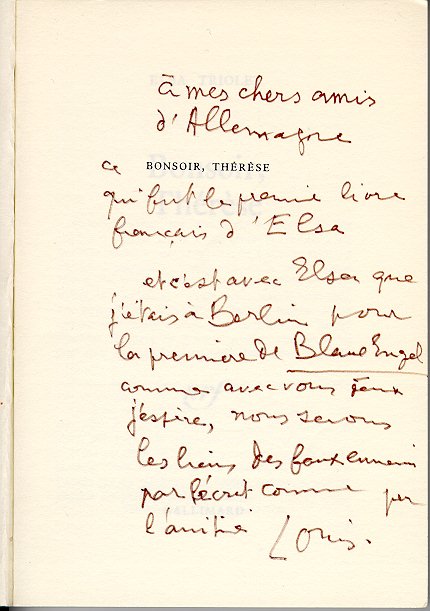 à mes chers amis
d'Allemagne
ce
BONSOIR, THÉRÈSE
qui fut le premier livre
français d'Elsa
et c'est avec Elsa que
j'étais à Berlin pour
la première de Blaue Engel
comme avec vous
j'espère, nous serons
les liens des faux ennemis
par l'écrit comme par
l'amitié Louis.